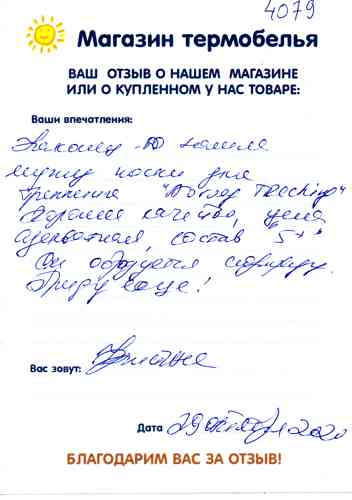 4079
Магазин термобелья
ВАШ ОТЗЫВ О НАШЕМ МАГАЗИНЕ
ИЛИ О КУПЛЕННОМ У НАС ТОВАРЕ:
Ваши впечатления:
Наконец-то нашла
мужу носки для
треккинга
Хорошее качество, цена
адекватная, состав "5+"
Он обрадуется сюрпризу.
Приду еще!
Вас зовут:
Дата 29 октября 2020
БЛАГОДАРИМ ВАС ЗА ОТЗЫВ!